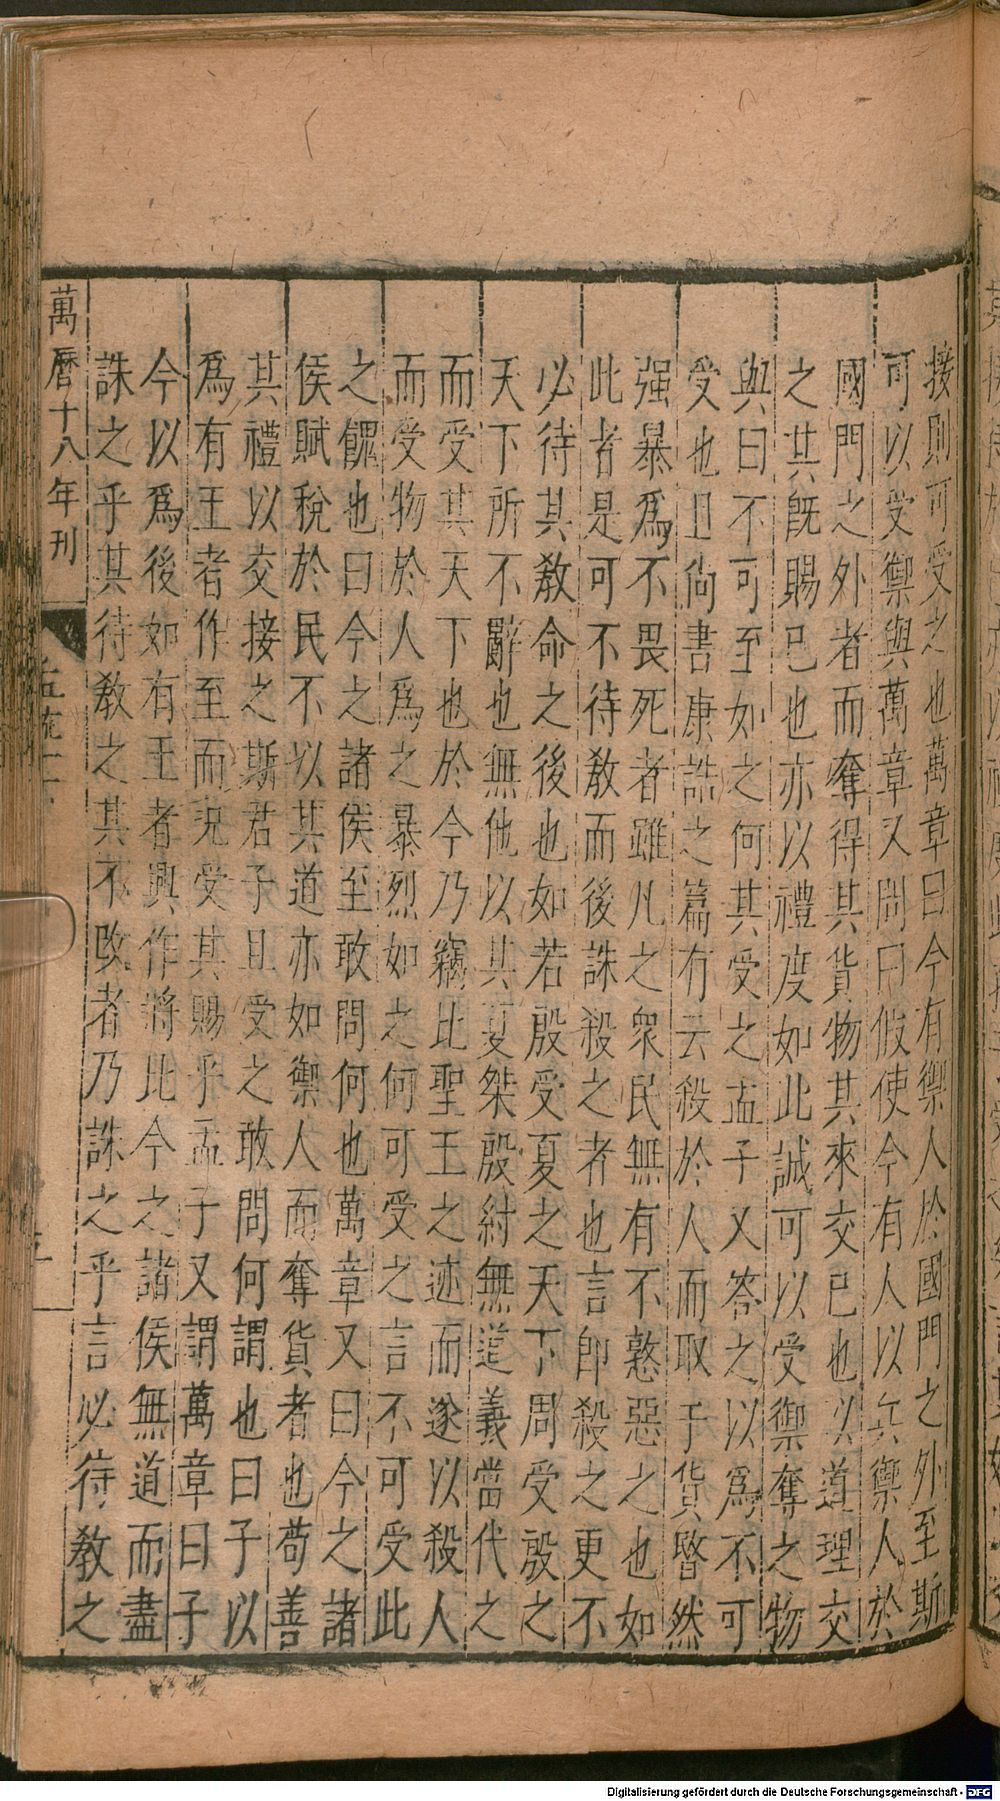 接則可受之也萬章曰今有禦人於國門之外至斯
可以受禦與萬章又問曰假使今有人以兵禦人於
國門之外者而奪得其貨物其來交已也以道理交
之其既賜已也亦以禮度如此誠可以受禦奪之物
與曰不可至如之何其受之孟子又答之以爲不可
受也且尙書康誥之篇有云殺於人而取于貨暋然
强暴爲不畏死者雖凡之衆民無有不憝惡之也如
此者是可不待教而後誅殺之者也言即殺之更不
必待其教命之後也如若殷受夏之天下周受殷之
天下所不辭也無他以其夏桀殷紂無道義當代之
而受其天下也於今乃竊比聖王之迹而遂以殺人
而受物於人爲之暴烈如之何可受之言不可受此
之餽也曰今之諸侯至敢問何也萬章又曰今之諸
侯賦稅於民不以其道亦如禦人而奪貨者也苟善
其禮以交接之斯君子且受之敢問何謂也曰子以
爲有王者作至而況受其賜乎孟子又謂萬章曰子
今以爲後如有王者興作將比今之諸侯無道而盡
誅之乎其待教之其不改者乃誅之乎言必待教之
萬曆十八年刊
Digitalisierung gefördert durch die Deutsche Forschungsgemeinschaft - DFG